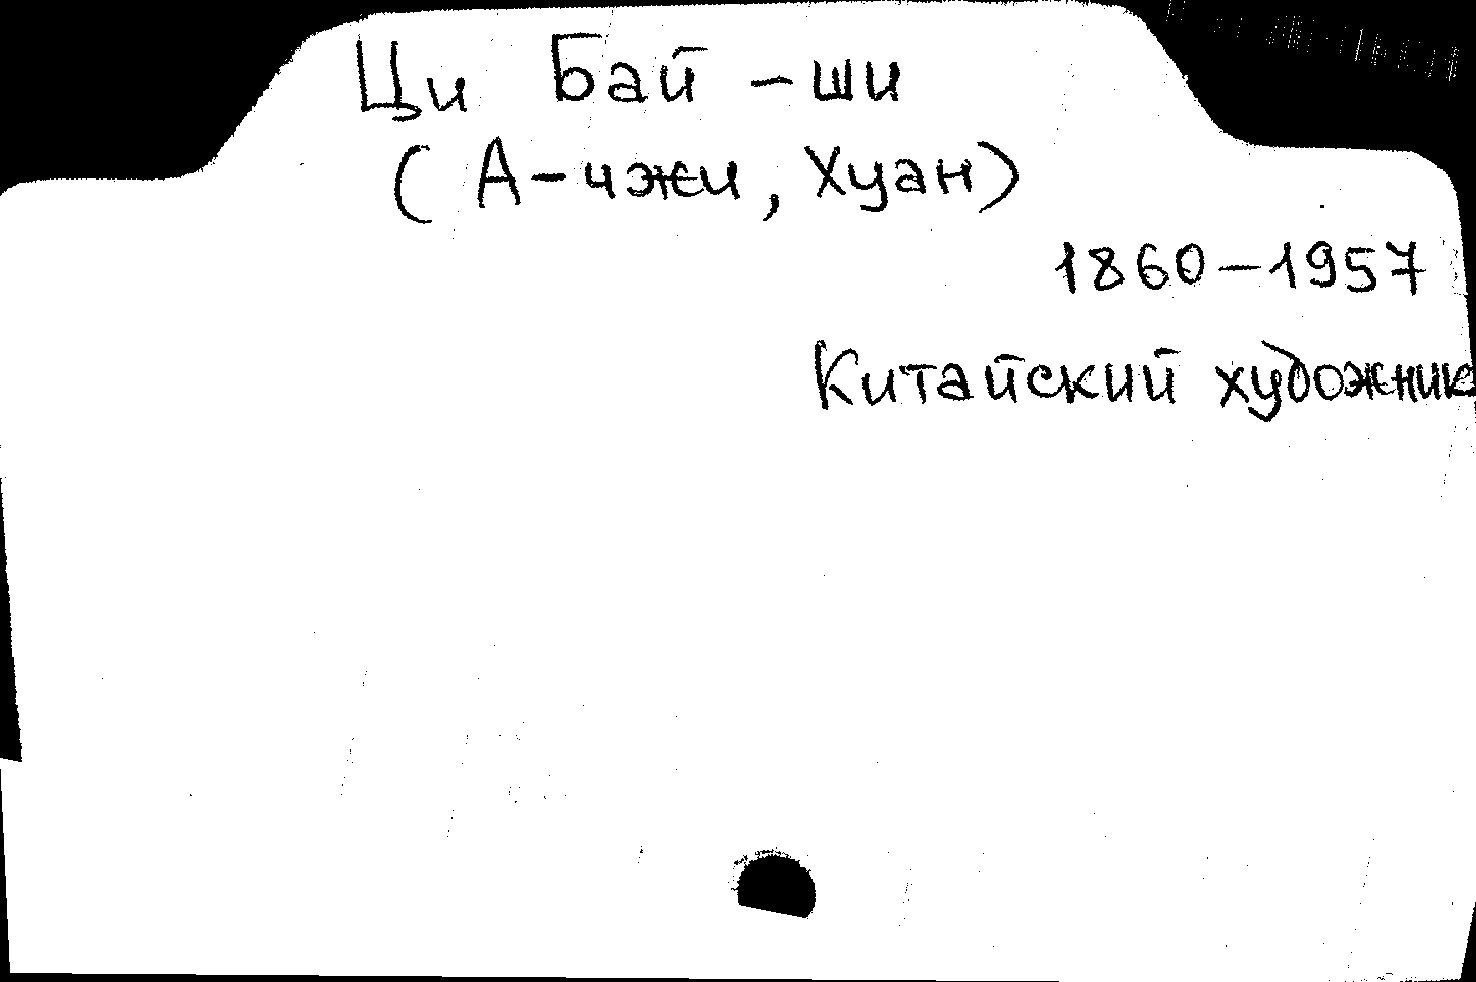 Ци Бай-ши
(А-чжи, Хуан)
1860-1957
Китайский художник